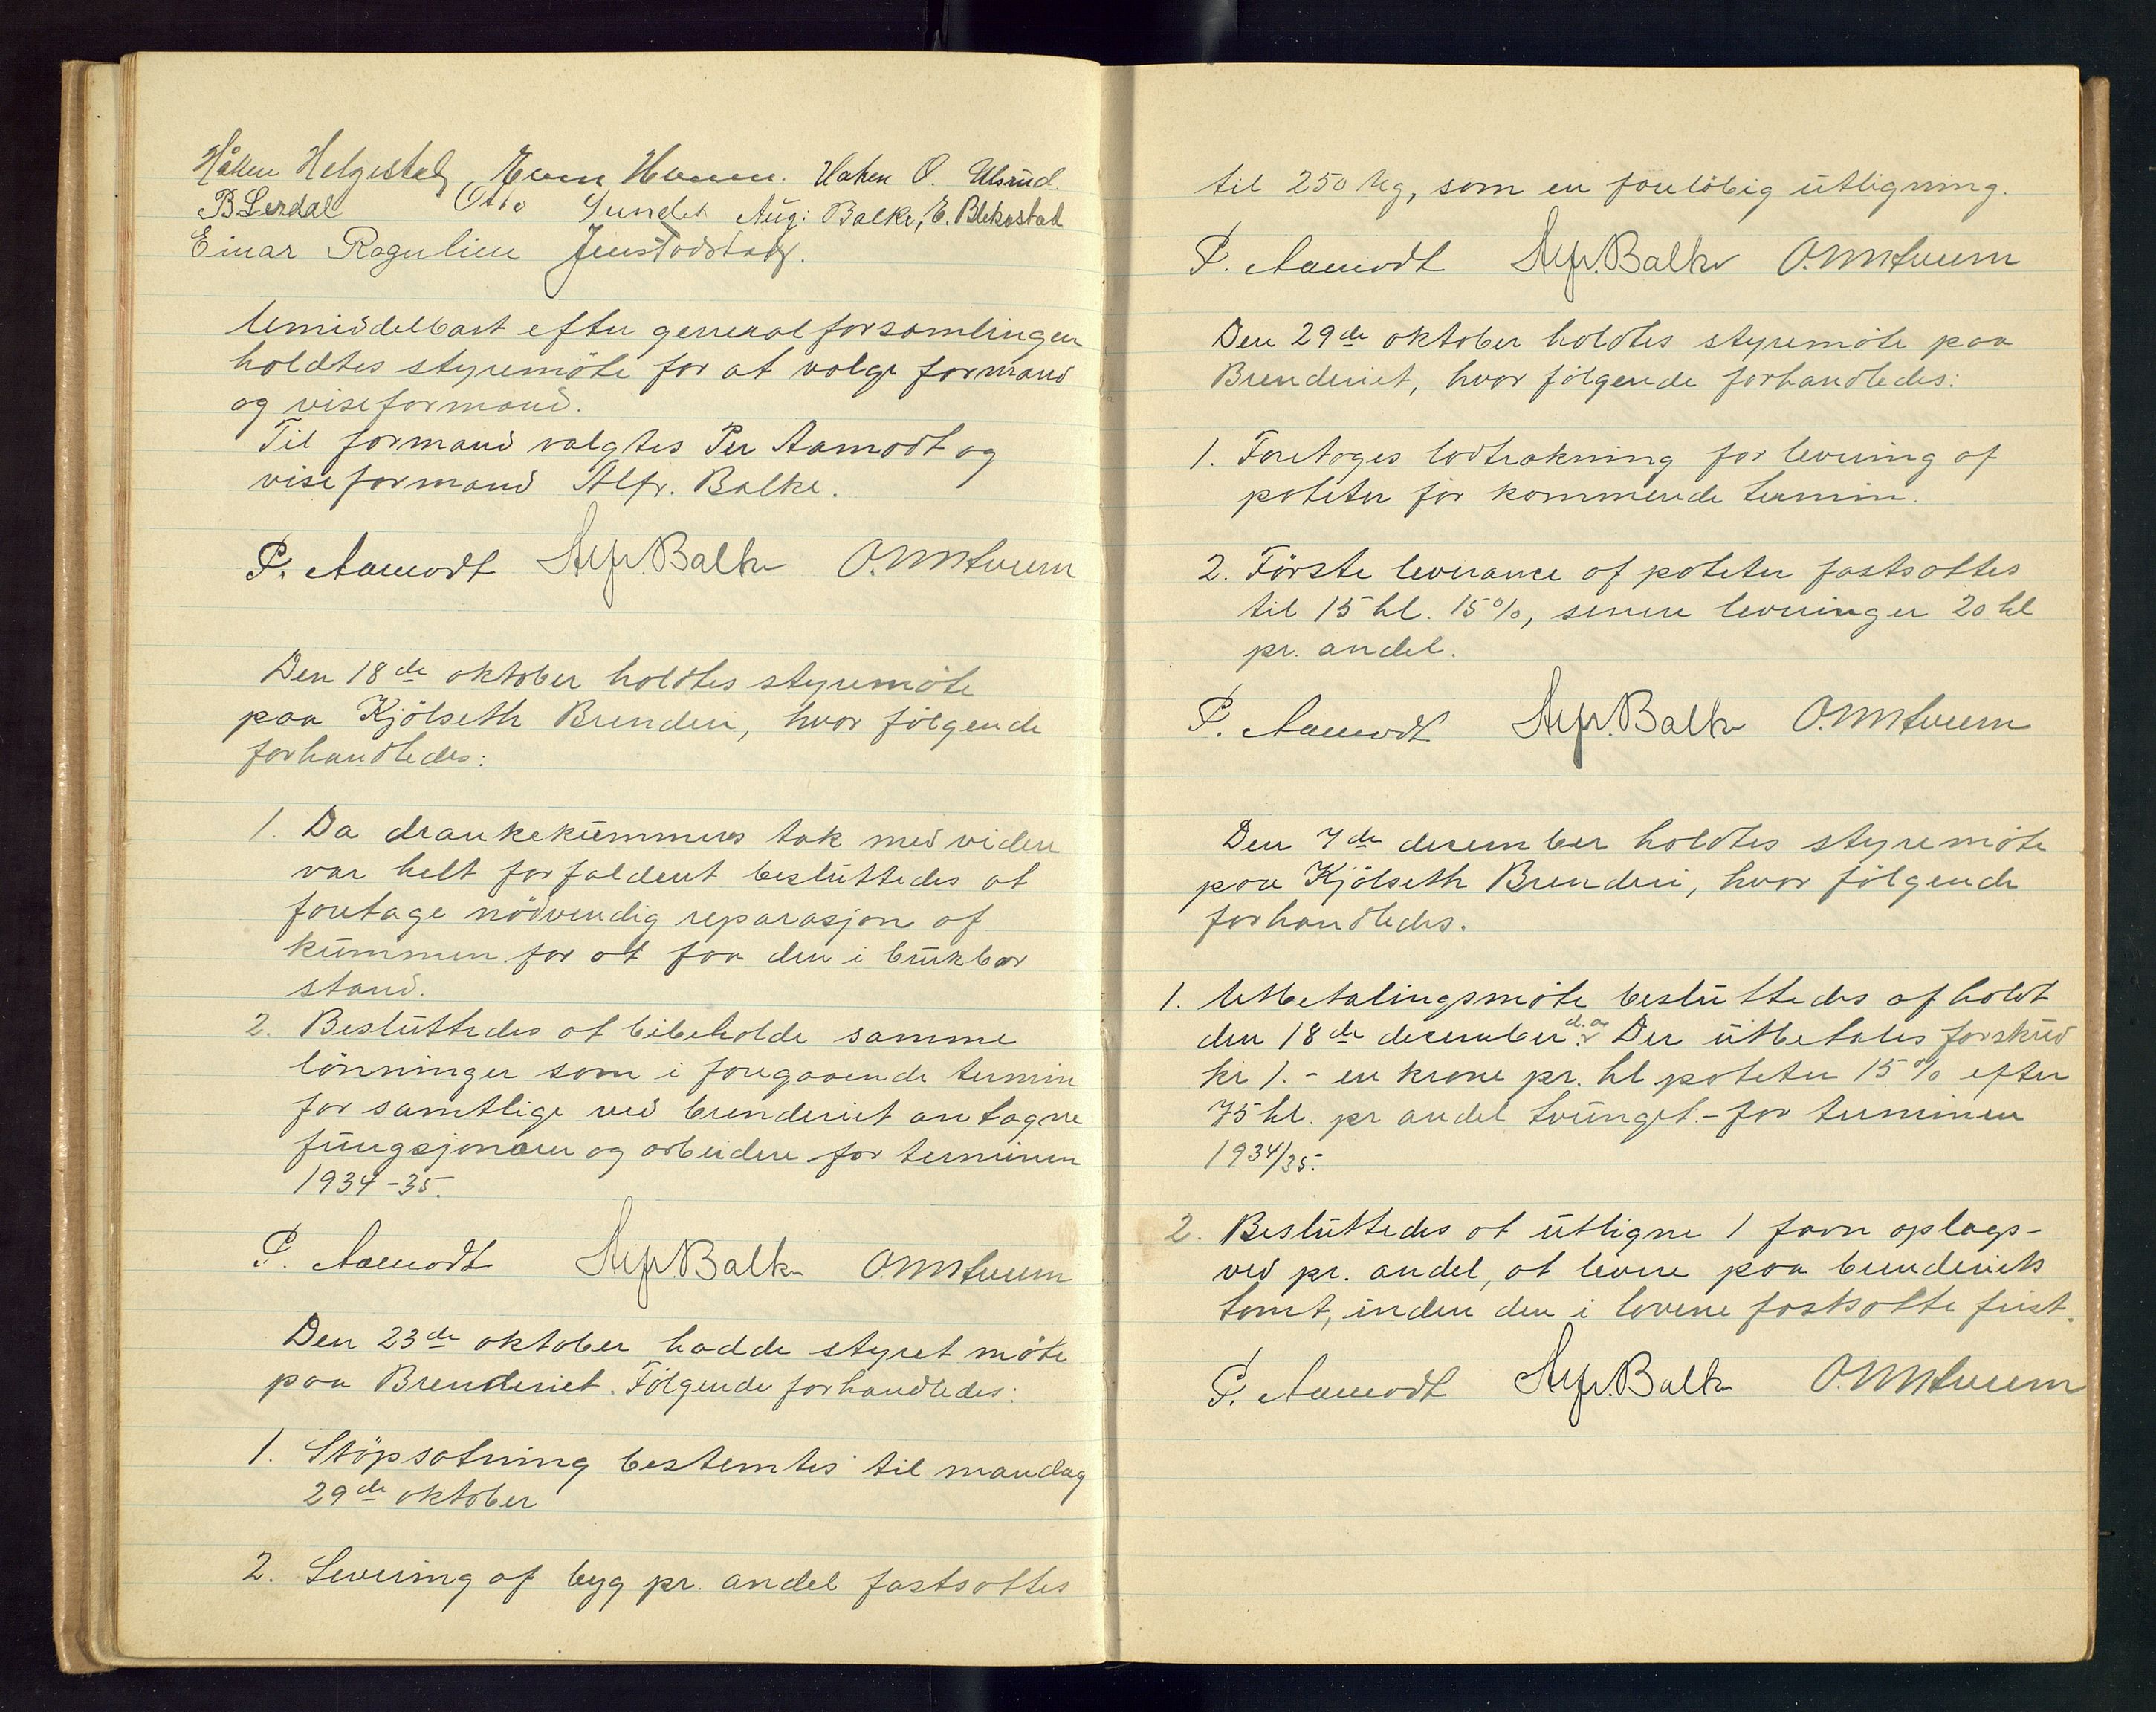 Håken Helgestad Hakon O. Ulsrud.
B. Lerdal Otto Sundet Aug: Balke, E. Blekastad
Einar Rognlien Jens Todstad.
Umiddelbart efter generalforsamlingen
holdtes styremöte for at valge formand
og viseformand.
Til formand valgtes Per Aamodt og
viseformand Alfr. Balke.
P. Aamodt Alfr. Balke
Den 18de oktober holdtes styremöte
paa Kjölseth Brenderi, hvor fölgende
forhandledes:
1. Da drankekummens tak med videre
var helt forfaldent besluttedes at
foretage nödvendig reparasjon af
kummen for at faa den i brukbar
stand.
2. Besluttedes at bibeholde samme
lönninger som i foregaaende termin
for samtlige ved brenderiet antagne
fungsjonærer og arbeidere for terminen
1934-35.
P. Aamodt Alfr. Balke
Den 23de oktober hadde styret möte
paa Brenderiet. Fölgende forhandledes:
1. Stöpsatning bestemtes til mandag
29de oktober
2. Levering af byg pr. andel fastsattes
til 250 kg, som en forelöbig utligning.
P. Aamodt Alfr. Balke
Den 29de oktober holdtes styremöte paa
Brenderiet, hvor fölgende forhandledes:
1. Foretoges lodtrakning for levering af
poteter for kommende termin.
2. Förste leverance af poteter fastsattes
til 15 hl. 15%, senere leveringer 20 hl
pr. andel.
P. Aamodt Alfr. Balke
Den 7de desember holdtes styremöte
paa Kjölseth Brenderi, hvor fölgende
forhandledes.
1. Utbetalingsmöte besluttedes afholdt
den 18de desember d.a. Der utbetales forskud
kr 1.- en krone pr. hl poteter 15% efter
75 hl. pr andel tvunget.- for terminen
1934/35.
2. Besluttedes at utligne 1 favn oplags-
ved pr. andel, at levere paa brenderiets
tomt, inden den i lovene fastsatte frist.
P. Aamodt Alfr. Balke